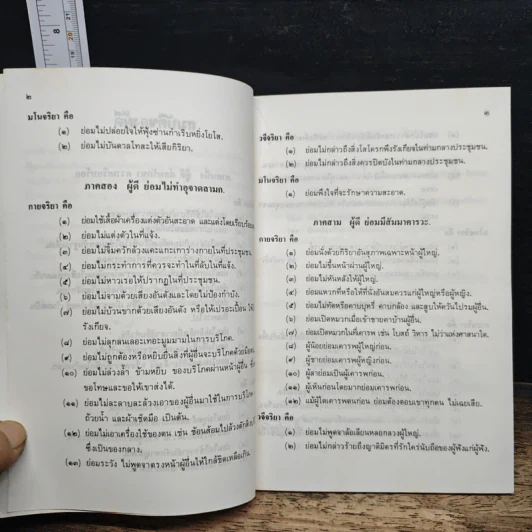 ๒
มโนจริยา คือ
(๑) ย่อมไม่ปล่อยใจให้ฟุ้งซ่านกำเริบหยิ่งโยโส.
(๒) ย่อมไม่บันดาลโทสะให้เสียกิริยา.
ภาคสอง ผู้ดี ย่อมไม่ทำอุจาดลามก.
กายจริยา คือ
(๑) ย่อมใช้เสื้อผ้าเครื่องแต่งตัวอันสะอาด และแต่งโดยเรียบร้อย
(๒) ย่อมไม่แต่งตัวในที่แจ้ง.
(๓) ย่อมไม่จิ้มควักล้วงแคะแกะเการ่างกายในที่ประชุมชน.
(๔) ย่อมไม่กระทำการที่ควรจะทำในที่ลับในที่แจ้ง.
(๕) ย่อมไม่หาวเรอให้ปรากฏในที่ประชุมชน.
(๖) ย่อมไม่จามด้วยเสียงอันดังและโดยไม่ป้องกำบัง.
(๗) ย่อมไม่บ้วนขากด้วยเสียงอันดัง หรือให้เปรอะเปื้อน ให้
รังเกียจ.
(๘) ย่อมไม่ลุกลนเลอะเทอะมูมมามในการบริโภค.
(๙) ย่อมไม่ถูกต้องหรือหยิบยื่นสิ่งที่ผู้อื่นจะบริโภคด้วยมือ
(๑๐) ย่อมไม่ล่วงล้ำ ข้ามหยิบ ของบริโภคผ่านหน้าผู้อื่น
ขอโทษและขอให้เขาส่งได้.
(๑๑) ย่อมไม่ละลาบละล้วงเอาของผู้อื่นมาใช้ในการบริโภค
ถ้วยน้ำ และผ้าเช็ดมือ เป็นต้น.
(๑๒) ย่อมไม่เอาเครื่องใช้ของตน เช่น ช้อนส้อมไปล้วงตัก
ซึ่งเป็นของกลาง.
(๑๓) ย่อมระวัง ไม่พูดจาตรงหน้าผู้อื่นให้ใกล้ชิดเหลือเกิน.
๓
วจีจริยา คือ
(๑) ย่อมไม่กล่าวถึงสิ่งโสโครกพึงรังเกียจในท่ามกลางประชุมชน.
(๒) ย่อมไม่กล่าวถึงสิ่งควรปิดบังในท่ามกลางประชุมชน.
มโนจริยา คือ
(๑) ย่อมพึงใจที่จะรักษาความสะอาด.
ภาคสาม ผู้ดี ย่อมมีสัมมาคารวะ.
กายจริยา คือ
(๑) ย่อมนั่งด้วยกิริยาอันสุภาพเฉพาะหน้าผู้ใหญ่.
(๒) ย่อมไม่ขึ้นหน้าผ่านผู้ใหญ่.
(๓) ย่อมไม่หันหลังให้ผู้ใหญ่.
(๔) ย่อมแหวกที่หรือให้ที่นั่งอันสมควรแก่ผู้ใหญ่หรือผู้หญิง.
(๕) ย่อมไม่ทัดหรือคาบบุหรี่ คาบกล้อง และสูบให้ควันไปรมผู้อื่น.
(๖) ย่อมเปิดหมวกเมื่อเข้าชายคาบ้านผู้อื่น.
(๗) ย่อมเปิดหมวกในที่เคารพ เช่น โบสถ์ วิหาร ไม่ว่าแห่งศาสนาใด.
(๘) ผู้น้อยย่อมเคารพผู้ใหญ่ก่อน.
(๙) ผู้ชายย่อมเคารพผู้หญิงก่อน.
(๑๐) ผู้ลาย่อมเป็นผู้เคารพก่อน.
(๑๑) ผู้เห็นก่อนโดยมากย่อมเคารพก่อน.
(๑๒) แม้ผู้ใดเคารพตนก่อน ย่อมต้องตอบเขาทุกคน ไม่เฉยเสีย.
วจีจริยา คือ
(๑) ย่อมไม่พูดจาล้อเลียนหลอกลวงผู้ใหญ่.
(๒) ย่อมไม่กล่าวร้ายถึงญาติมิตรที่รักใคร่นับถือของผู้ฟังแก่ผู้ฟัง.